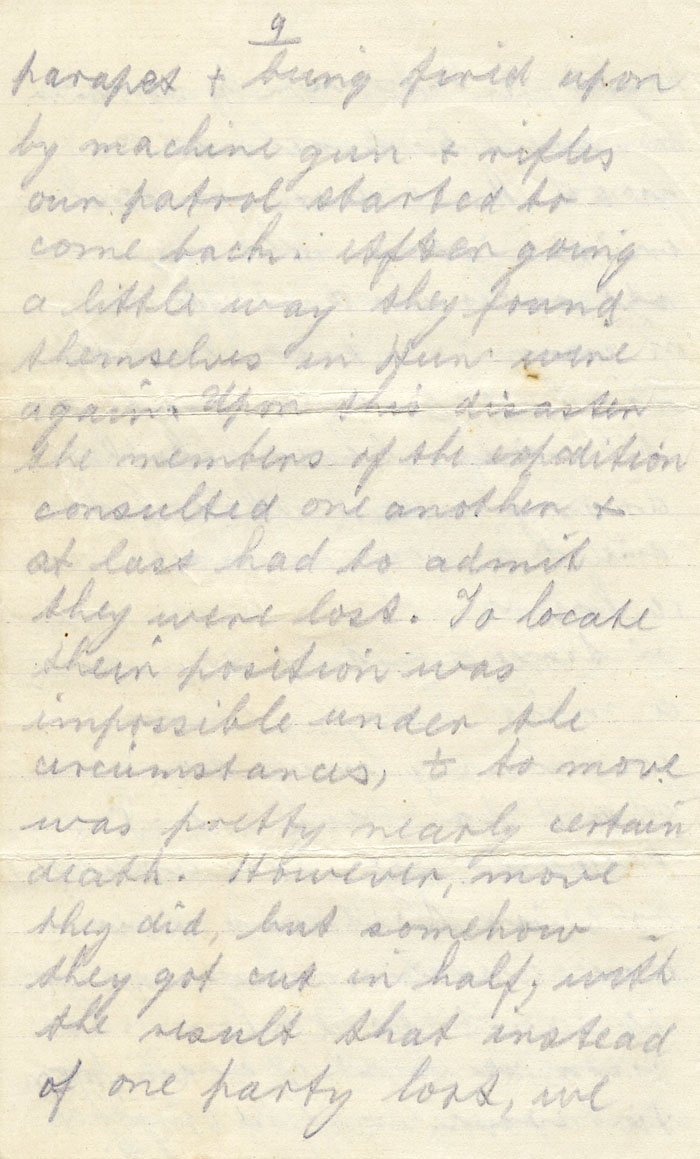 9
parapet + being fired upon
by machine gun + rifles
our patrol started to
come back. After going
a little way they found
themselves in Hun wire
again. Upon this disaster
the members of the expedition
consulted one another +
at last had to admit
they were lost. To locate
their position was
impossible under the
circumstances, + to move
was pretty nearly certain
death. However, move
they did, but somehow
they got cut in half, with
the result that instead
of one party lost, we